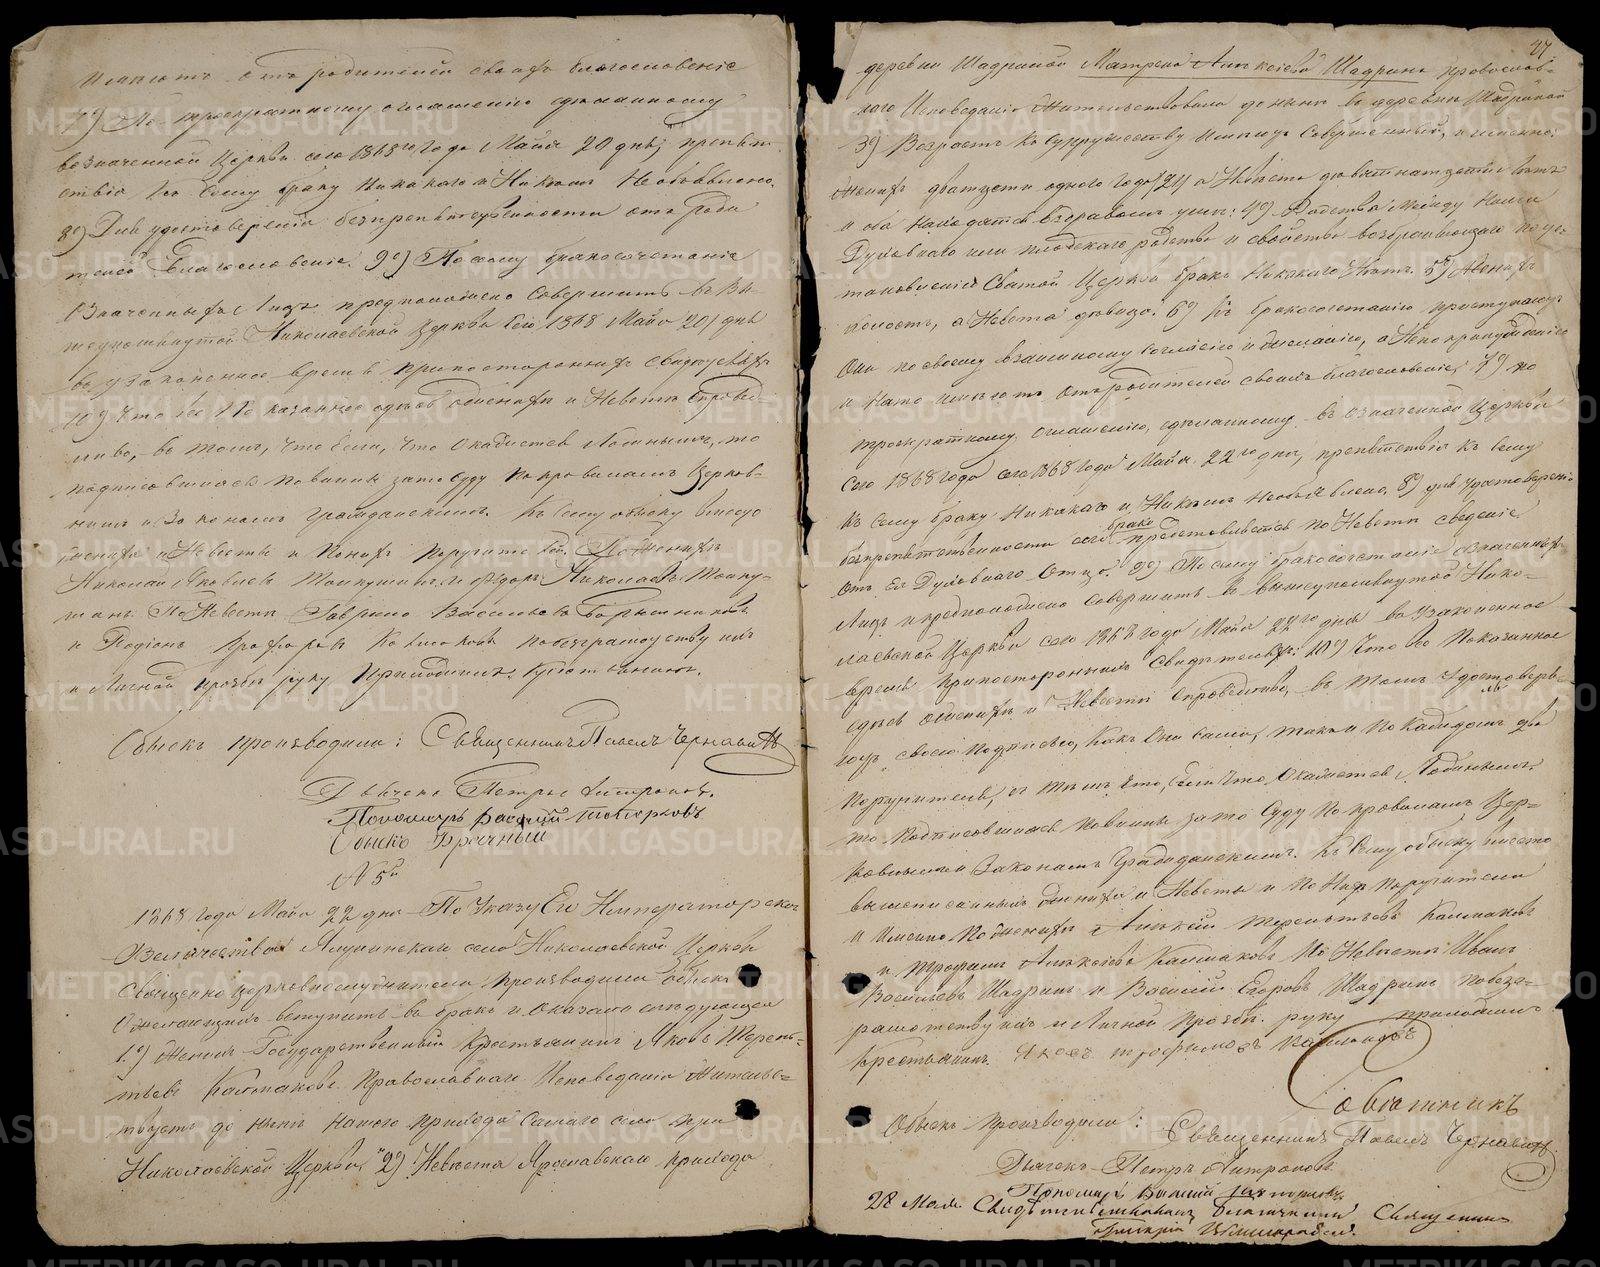 имѣютъ отъ родителей своихъ благословеніе
7е) По троекратному оглашенію сдѣланному
въ означенной Церкви сего 1868го Года Маія 20 дня, препят
ствія къ сему браку никакого и никѣмъ не объявлено.
8е) Для удостовѣренія безпрепятственности отъ роди
телей Благословеніе. 9е) По сему бракосочетаніе
означенныхъ Лицъ предположено совершить въ вы-
шеупомянутой Николаевской Церкви сего 1868 Майя 20 дня
въ узаконенное время при постороннихъ свидѣтеляхъ
10е) Что все показанное здѣсь о женихѣ и Невестѣ справед-
ливо, въ томъ, что если, что окажется ложнымъ, то
подписавшіяся повинны за то суду по правиламъ Церков-
нымъ и Законамъ гражданскимъ. Къ сему обыску вмѣсто
жениха и Невесты и по нихъ поручителей. По Женихѣ
Николай Яковлевъ и Федоръ Николаевъ
По Невестѣ Гаврило Васильевъ
и Родіонъ по безграмотству ихъ
и личной прозьбѣ руку приложилъ. Крестьянинъ.
Обыскъ производили: Священникъ Павелъ Чернавинъ
Дьячекъ Петръ
Пономарь Василій Топорковъ
Обыскъ Брачный
№ 5й
1868 Года Майя 22 дня По Указу Его Императорскаго
Величества села Николаевской Церкви
Священно церковнослужители производили обыскъ
о желающихъ вступить въ бракъ и оказалось слѣдующее
1е) Женихъ Государственный крестьянинъ Яковъ Терень-
тьевъ Калмаковъ Православнаго Исповеданія Жительс-
твуетъ до нынѣ нашего прихода самаго села при
Николаевской Церкви. 2е) Невѣста Ярославскаго прихода
27
деревни Шадриной Матрена Алексѣева Шадрина православ-
наго Исповеданія Жительствовала до нынѣ въ деревнѣ Шадриной
3е) Возрастъ къ супружеству имѣютъ совершенный, а именно:
Женихъ двадцати одного года (21) а Невеста девятнатцати лѣтъ
и оба находятся въ здравомъ умѣ: 4е) Родства между ними
Духовнаго или плотскаго родства и свойства возбраняющаго по ус-
тановленію Святой Церкви бракъ никакого нѣтъ. 5е) Женихъ
холостъ, а Невеста девица. 6е) Къ бракосочетанію приступаютъ
Они по своему взаимному согласію и желанію, а не по принужденію
и на то имѣютъ отъ родителей своихъ благословеніе, 7е) по
троекратному оглашенію, сдѣланному въ означенной Церкви
сего 1868 Года сего 1868 Года Майя 22го дня, препятствія къ сему
къ сему браку никакого и никѣмъ не объявлено, 8е) для удостоверенія
безпрепятственности сего брака представляется по Невестѣ сведеніе
отъ Ея Духовнаго Отца. 9е) По сему бракосочетаніе означенныхъ
Лицъ предположено совершить въ вышеупомянутой Нико-
лаевской Церкви сего 1868 года Майя 22го дня въ узаконенное
время при постороннихъ свидѣтеляхъ: 10е) Что все показанное
здѣсь о женихѣ и Невестѣ справедливо, въ томъ удостоверя-
ютъ своею подписью, какъ они сами, такъ и по каждомъ два
поручителя, съ тѣмъ что, если что, окажется ложнымъ,
то подписавшіяся повинны за то суду по правиламъ Цер-
ковнымъ и Законамъ Гражданскимъ. Къ сему обыску вмѣсто
вышеписанныхъ жениха и Невесты и по нихъ поручителей
и именно по женихѣ Алексѣй Терентьевъ Калмаковъ
и Трофимъ Алексѣевъ Калмаковъ По Невестѣ Иванъ
Васильевъ Шадринъ и Василій Егоровъ Шадринъ по безг-
рамотству ихъ и личной прозьбѣ руку приложилъ
Крестьянинъ Яковъ Трофимовъ Калмаковъ
Обыскъ производили: Священникъ Павелъ Чернавинъ
Дьячекъ Петръ
Пономарь Василій Топорковъ
28 Мая. Священникъ
METRIKI.GASO-URAL.RU